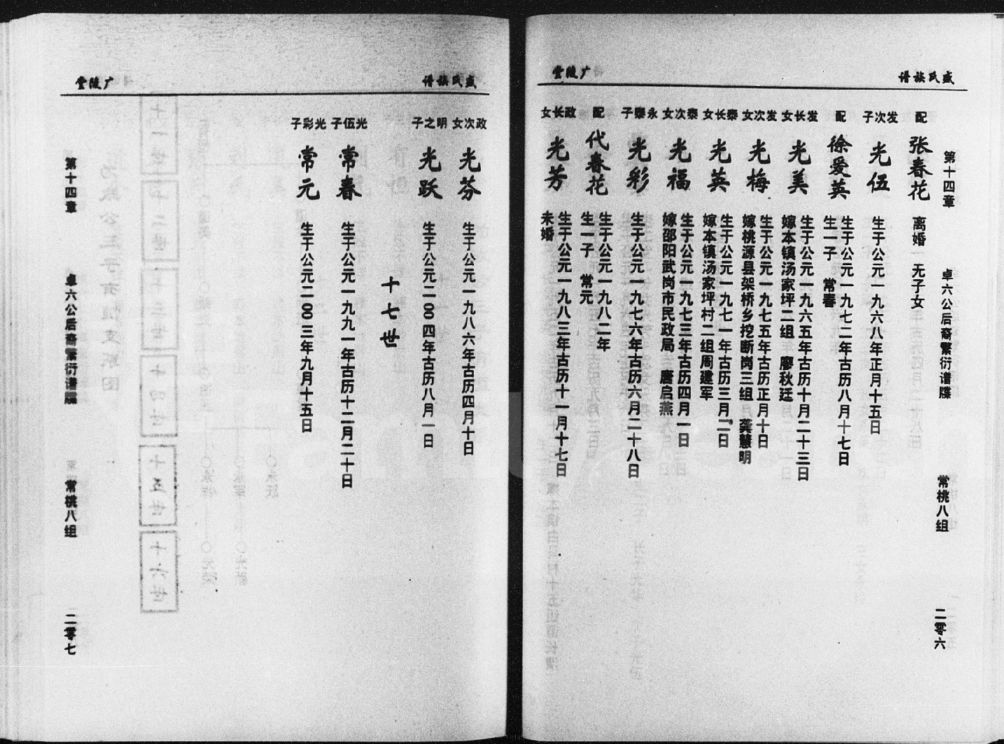 盛氏族谱
广陵堂
第十四章 卓六公后裔繁衍谱牒 常桃八组 二零六
配 张春花 离婚 无子女
发次子 光伍 生于公元一九六八年正月十五日
配 徐爱英 生于公元一九七二年古历八月十七日
生一子 常春
发长女 光美 生于公元一九六五年古历十月二十三日
嫁本镇汤家坪二组 廖秋廷
发次女 光梅 生于公元一九七五年古历正月十日
嫁桃源县架桥乡挖断岗三组 龚慧明
泰长女 光英 生于公元一九七一年古历三月二日
嫁本镇汤家坪村二组周建军
泰次女 光福 生于公元一九七三年古历四月一日
嫁邵阳武岗市民政局 唐启燕
永泰子 光彩 生于公元一九七六年古历六月二十八日
配 代春花 生于公元一九八二年
生一子 常元
政长女 光芳 生于公元一九八三年古历十一月十七日
未婚
盛氏族谱
广陵堂
政次女 光芬 生于公元一九八六年古历四月十日
明之子 光跃 生于公元二00四年古历八月一日
十七世
光伍子 常春 生于公元一九九一年古历十二月二十日
光彩子 常元 生于公元二00三年九月十五日
第十四章 卓六公后裔繁衍谱牒 常桃八组 二零七